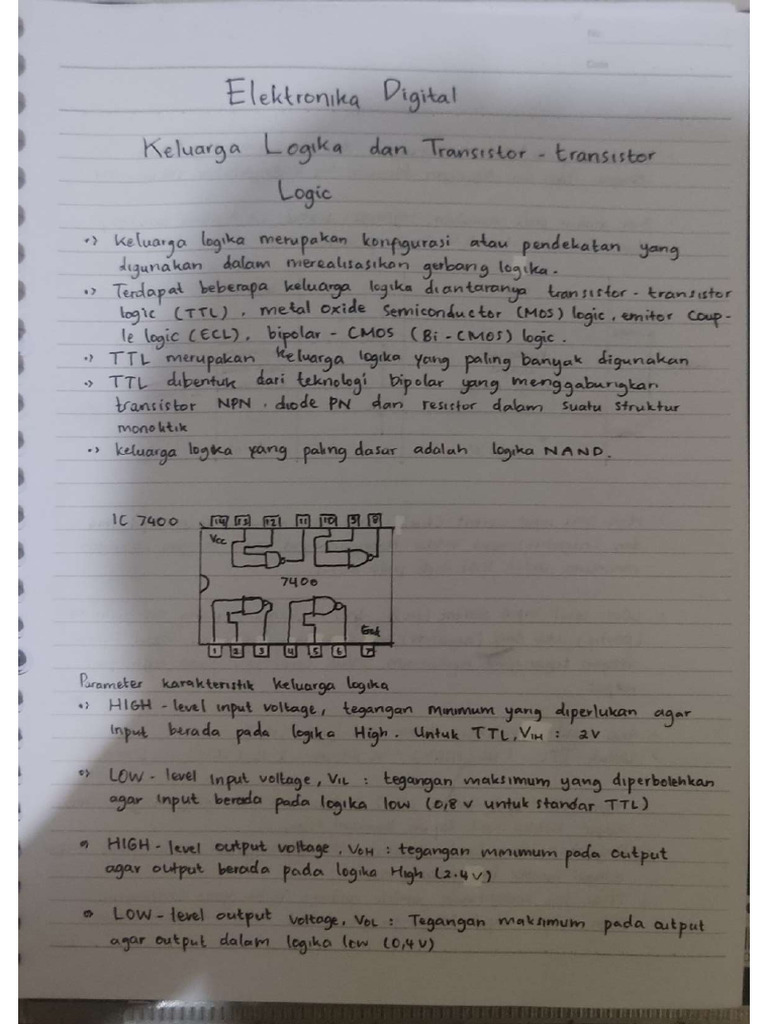 No
Date
Elektronika Digital
Keluarga Logika dan Transistor - transistor
Logic
•> Keluarga logika merupakan konfigurasi atau pendekatan yang
digunakan dalam merealisasikan gerbang logika.
•> Terdapat beberapa keluarga logika diantaranya transistor - transistor
logic (TTL), metal oxide semiconductor (MOS) logic, emitor Coup-
le logic (ECL), bipolar - CMOS (Bi - CMOS) logic.
•> TTL merupakan keluarga logika yang paling banyak digunakan
•> TTL dibentuk dari teknologi bipolar yang menggabungkan
transistor NPN, diode PN dan resistor dalam suatu struktur
monolitik
•> keluarga logika yang paling dasar adalah logika NAND.
IC 7400
14 13 12 11 10 9 8
Vcc
7400
1 2 3 4 5 6 7
Parameter karakteristik keluarga logika
•> HIGH - level input voltage, tegangan minimum yang diperlukan agar
input berada pada logika High. Untuk TTL, VIH : 2V
•> LOW - level input voltage, VIL : tegangan maksimum yang diperbolehkan
agar input berada pada logika low (0,8 v untuk standar TTL)
•> HIGH - level output voltage, VOH : tegangan minimum pada output
agar output berada pada logika High (2.4 V)
•> LOW - level output voltage, VOL : Tegangan maksimum pada output
agar output dalam logika low (0,4 V)